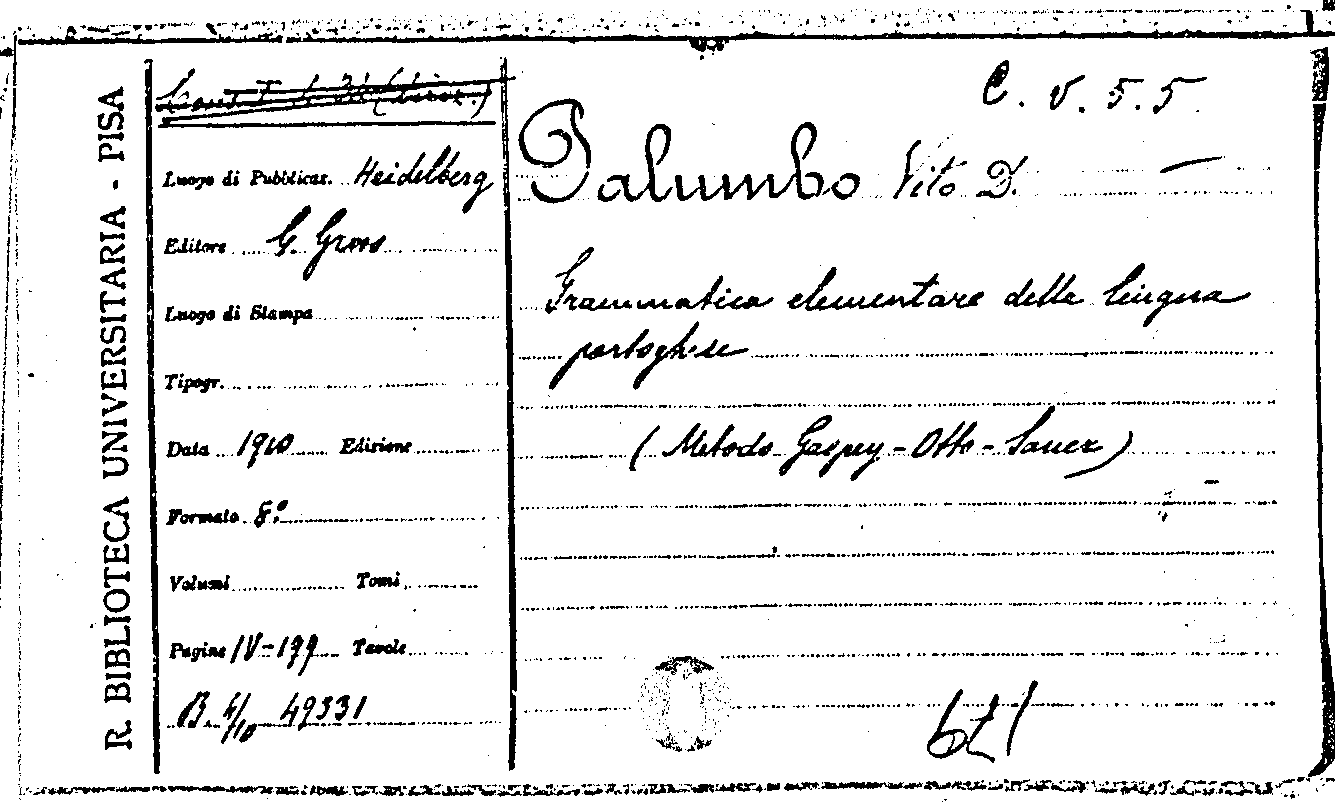 R. BIBLIOTECA UNIVERSITARIA - PISA
C. V. 5. 5
Luogo di Pubblicaz. Heidelberg
Editore G. Groos
Luogo di Stampa
Tipogr.
Data 1910 Edizione
Formato 8.º
Volumi Tomi
Pagine IV-199 Tavole
B. 49331
Palumbo Vito D. —
Grammatica elementare della lingua
portoghese
(Metodo Gaspey-Otto-Sauer)